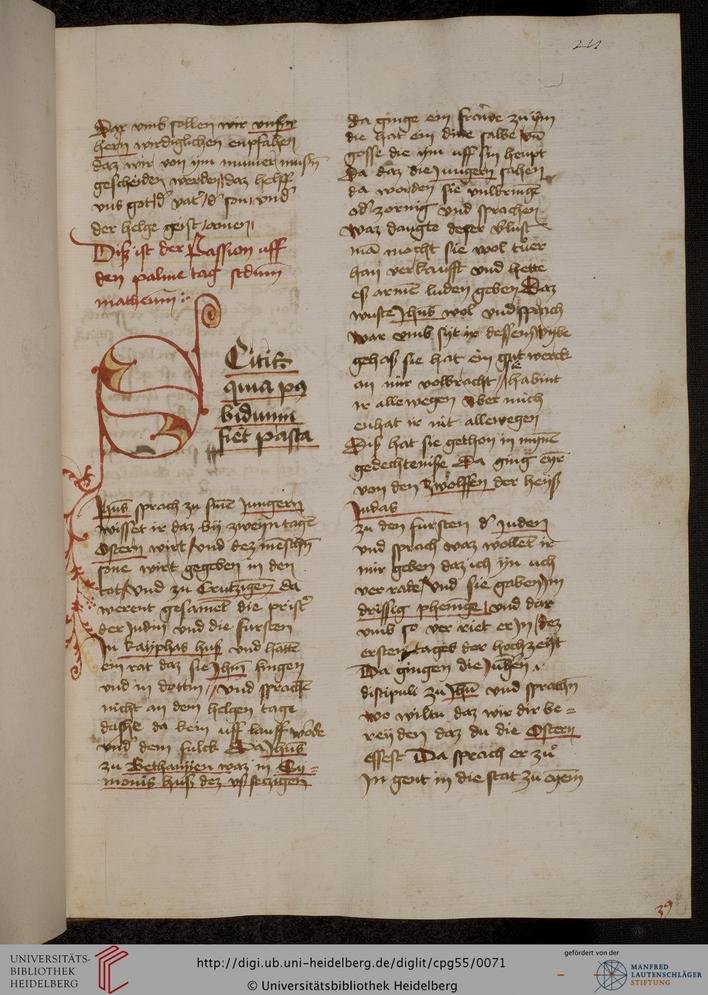 Dar vmb sollen wir vnsern
hern wirdiglichen enpfahen
daz wir von ym nummer musen
gescheiden werden daz helff
vns got d' vat' d' son vnd
der helge geist / amen
Diß ist der Passion uff
den palme tag scdum
matheum
Scitis
quia pꝰ
biduum
fiet pasca
Jhūs sprach zu sinē Jungern
wisset ir daz bÿ zweyn tagē
Ostern wirt vnd dez menschn
sone wirt gegeben in den
tot vnd zu Crutzigen da
werent gesamelt die prist'
der Judin vnd die fursten
In kayphas huß vnd hattē
ein rat daz sie Jhm fingen
vnd in dottin / vnd sprachē
nicht an dem helgen tage
da kein uff lauff wōde
vnd' dem fulck Da Jhūs
zu Bethanyen waz in Sy=
monis huß dez vß setzigen
da ginge ein frauwe zu ym
die hat ein salbe vn̄
gosse die ym uff sin heupt
Da daz die Jungern sahen
da worden sie
od' zornig vnd sprachen
waz daugte deser vlust
mā mocht sie wol tuer
han verkaufft vnd hette
eß armē luden geben Daz
wuste Jhūs wol vnd sprach
war vmb sijt ir dessem wybe
gehaß sie hat ein gut werck
an mir volbracht / ir habint
ir allewegen aber mich
enhat ir nit allewegen
Diß hat sie gethon in mynē
gedechteniße Da ging eyn'
von den zwolffen der heyß
Judas
zu den fursten d' Juden
vnd sprach waz wollet ir
mir geben daz ich yn uch
ver rade / vnd sie gaben Im
drissig phenige / vnd dar
vmb so ver riet er In / dez
ersten tages der hochzeyt
Da gingen die Juncher
discipuli zu Jhū vnd sprachn
wo wiltu daz wir dir be=
reyden daz du die Ostern
essest Da sprach er zu
In gent in die stat zu eynem
39
UNIVERSITÄTS-
BIBLIOTHEK
HEIDELBERG
http://digi.ub.uni-heidelberg.de/diglit/cpg55/0071
© Universitätsbibliothek Heidelberg
gefördert von der
MANFRED
LAUTENSCHLÄGER
STIFTUNG